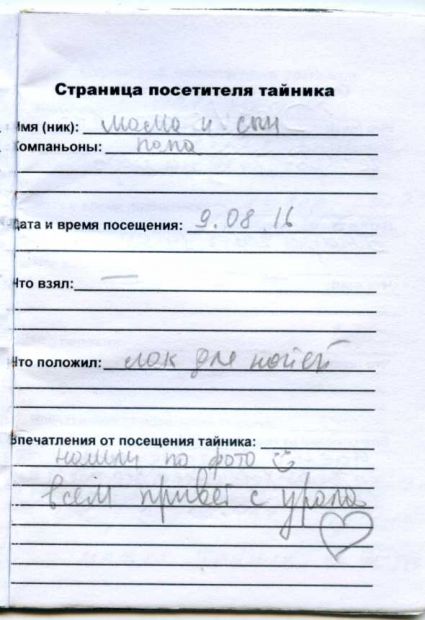 Страница посетителя тайника
Имя (ник): мама и сын
Компаньоны: папа
Дата и время посещения: 9.08 16
Что взял: —
Что положил: лак для ногтей
Впечатления от посещения тайника:
нашли по фото
всем привет с урала